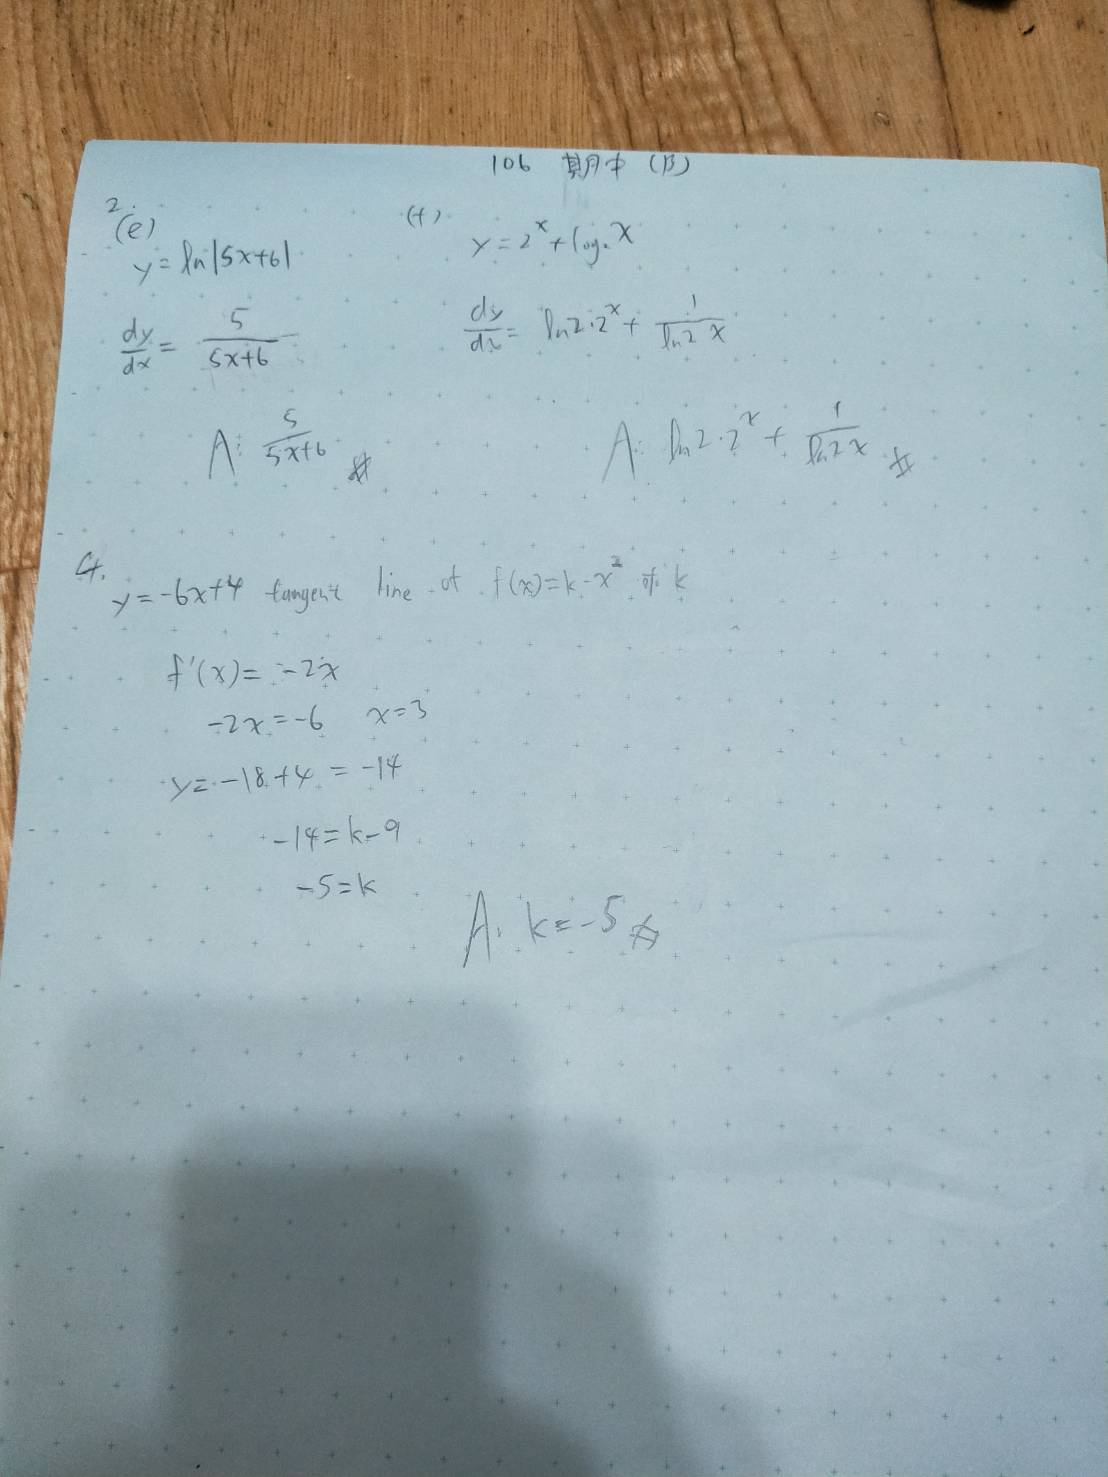 106 期中 (B)
2.
(e)
y = ln|5x+6|
dy/dx = 5/(5x+6)
A: 5/(5x+6) #
(f)
y = 2^x + log₂ x
dy/dx = ln2·2^x + 1/(ln2 x)
A: ln2·2^x + 1/(ln2 x) #
4.
y = -6x+4 tangent line of f(x) = k - x² of k
f'(x) = -2x
-2x = -6 x = 3
y = -18+4 = -14
-14 = k-9
-5 = k
A: k = -5 #